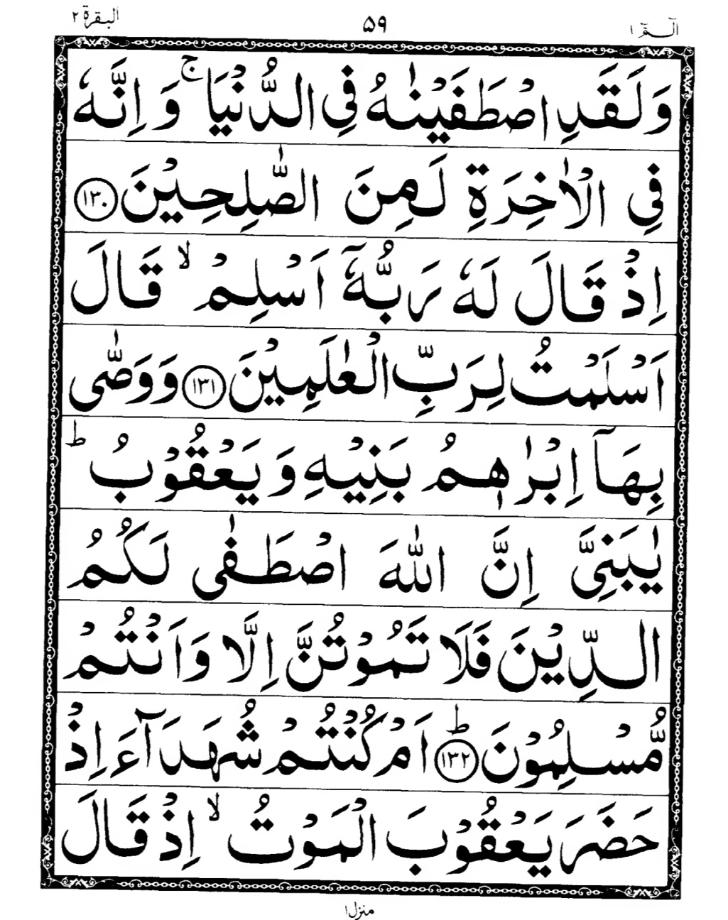 الٓمّٓ ١ ٥٩ البقرة ٢
وَلَقَدِ اصْطَفَيْنٰهُ فِي الدُّنْيَا ۚ وَ اِنَّهٗ
فِي الْاٰخِرَةِ لَمِنَ الصّٰلِحِيْنَ ﴿١٣٠﴾
اِذْ قَالَ لَهٗ رَبُّهٗٓ اَسْلِمْ ۙ قَالَ
اَسْلَمْتُ لِرَبِّ الْعٰلَمِيْنَ ﴿١٣١﴾ وَوَصّٰى
بِهَآ اِبْرٰهٖمُ بَنِيْهِ وَ يَعْقُوْبُ ؕ
يٰبَنِيَّ اِنَّ اللّٰهَ اصْطَفٰى لَكُمُ
الدِّيْنَ فَلَا تَمُوْتُنَّ اِلَّا وَ اَنْتُمْ
مُّسْلِمُوْنَ ؕ﴿١٣٢﴾ اَمْ كُنْتُمْ شُهَدَآءَ اِذْ
حَضَرَ يَعْقُوْبَ الْمَوْتُ ۙ اِذْ قَالَ
منزل ١